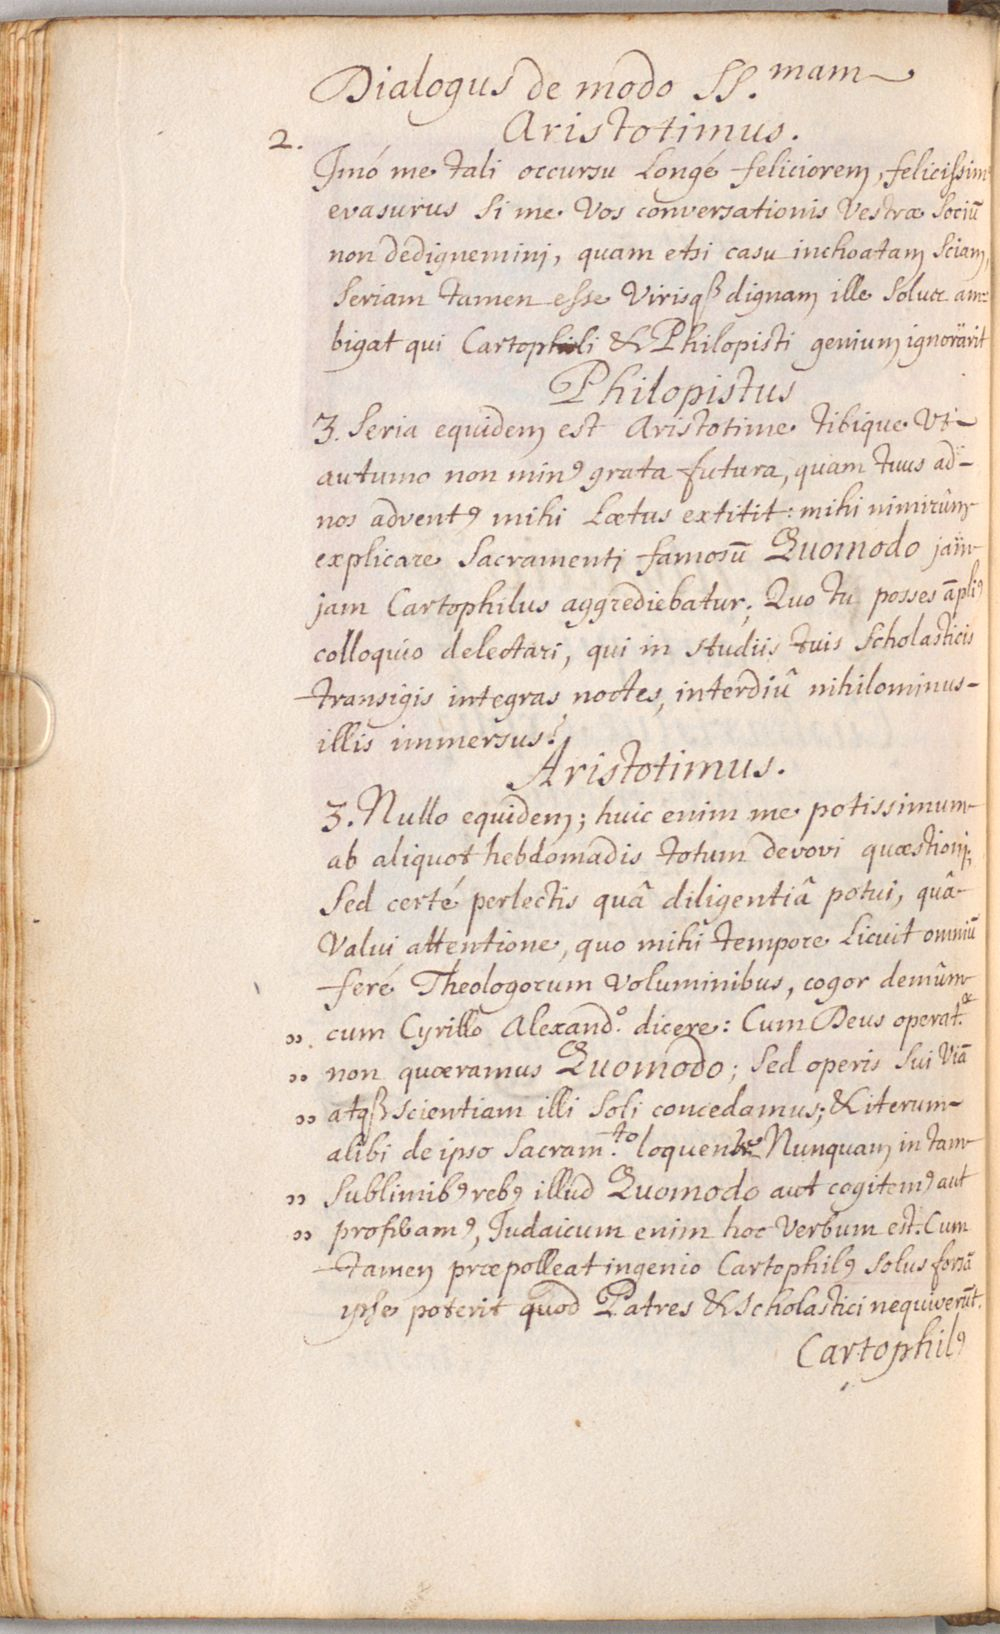 Dialogus de modo SS.mam
2. Aristotimus.
Jmó me tali occursu Longé feliciorem, felicissim
evasurus si me Vos conversationis Vestræ sociū
non dedignemini, quam etsi casu inchoatam sciam,
seriam tamen esse Virisqß dignam ille solus am=
bigat qui Cartophili & Philopisti genium ignorarit
Philopistus
3. Seria equidem est Aristotime tibique Vt
autumo non minꝰ grata futura, quam tuus ad-
nos adventꝰ mihi Lætus extitit: mihi nimirûm
explicare Sacramenti famosū Quomodo jam
jam Cartophilus aggrediebatur; Quo tu posses āpliꝰ
colloquio delectari, qui in studiis tuis Scholasticis
transigis integras noctes, interdiû nihilominus-
illis immersus?
Aristotimus.
3. Nullo equidem; huic enim me potissimum
ab aliquot hebdomadis totum devovi quæstioni;
Sed certé perlectis quâ diligentiâ potui, quâ-
Valui attentione, quo mihi tempore Licuit omniū
feré Theologorum Voluminibus, cogor demûm
„ cum Cyrillo Alexand.o dicere: Cum Deus operat.r
„ non quæramus Quomodo; Sed operis sui Viā
„ atqß scientiam illi soli concedamus; & iterum-
alibi de ipso Sacram.to loquens Nunquam in tam
„ Sublimibꝰ rebꝰ illud Quomodo aut cogitemꝰ aut
„ proferamꝰ, Judaicum enim hoc Verbum est. Cum
tamen præpolleat ingenio Cartophilꝰ solus forsā
ipse poterit quod Patres & Scholastici nequiverūt.
Cartophilꝰ